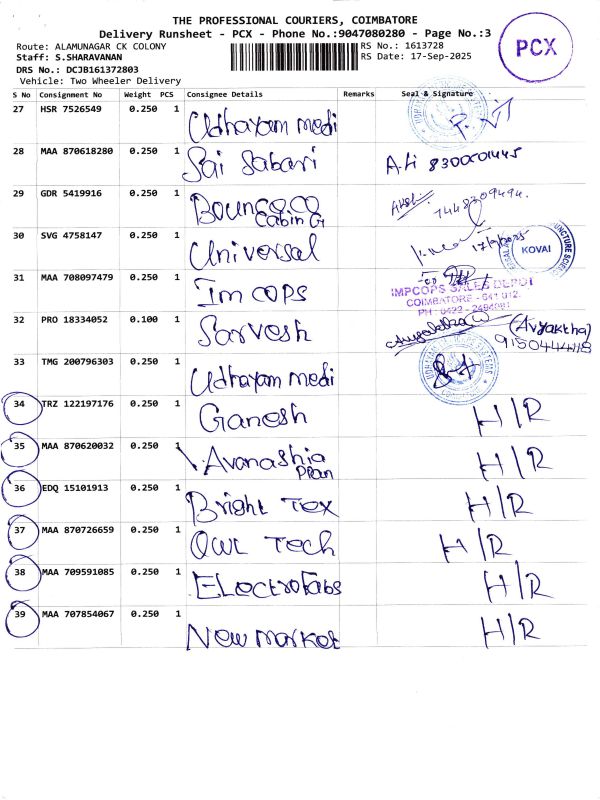 THE PROFESSIONAL COURIERS, COIMBATORE
Delivery Runsheet - PCX - Phone No.:9047080280 - Page No.:3
PCX
Route: ALAMUNAGAR CK COLONY RS No.: 1613728
Staff: S.SHARAVANAN RS Date: 17-Sep-2025
DRS No.: DCJB161372803
Vehicle: Two Wheeler Delivery
S No Consignment No Weight PCS Consignee Details Remarks Seal & Signature
27 HSR 7526549 0.250 1 Udhayam medi
28 MAA 870618280 0.250 1 Sai Sabari
29 GDR 5419916 0.250 1 Bounce
Cabin G
30 SVG 4758147 0.250 1 Universal 17/9/2025
KOVAI
31 MAA 708097479 0.250 1 Im COPS
IMPCOPS SALES DEPOT
COIMBATORE - 641 012.
32 PRO 18334052 0.100 1 Sarvesh (Avyaktha)
33 TMG 200796303 0.250 1 Udhayam medi
34 TRZ 122197176 0.250 1 Ganesh H/R
35 MAA 870620032 0.250 1 Avanashia H/R
Plan
36 EDQ 15101913 0.250 1 Bright Tex H/R
37 MAA 870726659 0.250 1 Owl Tech H/R
38 MAA 709591085 0.250 1 ElectroFabs H/R
39 MAA 707854067 0.250 1 New market H/R